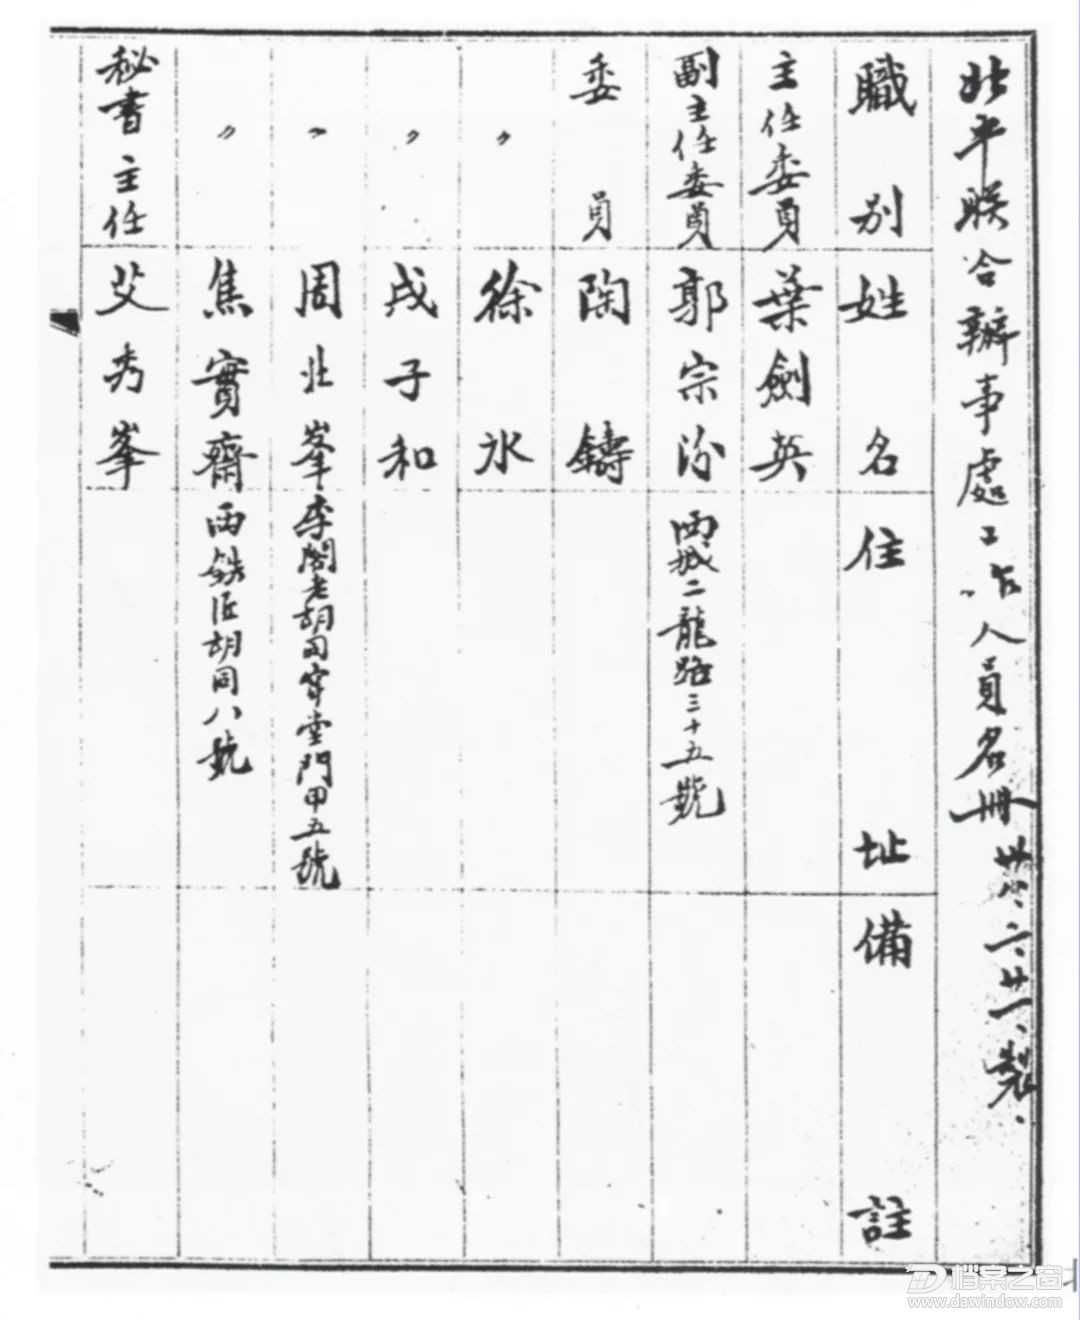 北平联合辦事處工作人員名冊 卅八、二、廿一、製、
職別 姓名 住址 備註
主任委員 葉劍英
副主任委員 郭宗汾 西城二龍路三十五號
委員 陶鑄
〃 徐冰
〃 戎子和
〃 周北峯 李閣老胡同穿堂門甲五號
〃 焦實齋 西鉄匠胡同八號
秘書主任 艾秀峯
档案之窗
www.dawindow.com